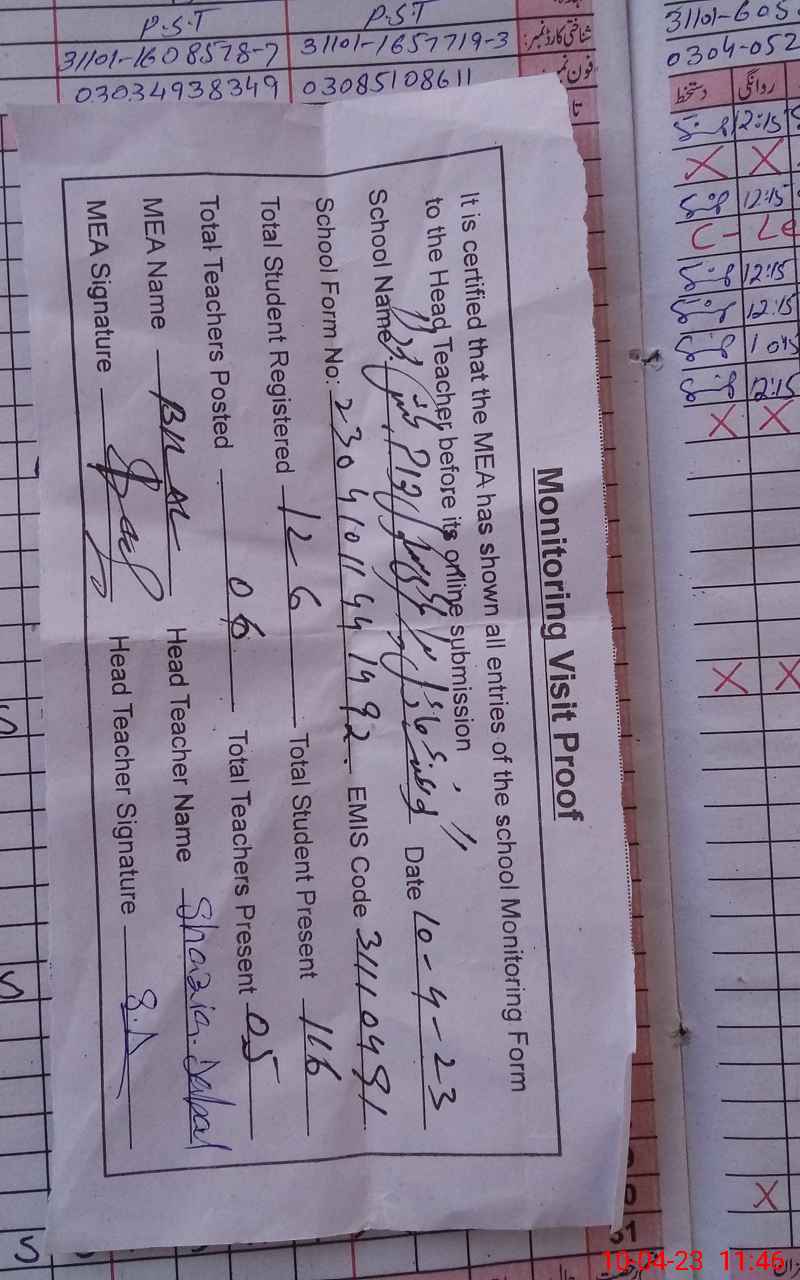 P.S.T P.S.T
31101-1608578-7 31101-1657719-3 شناختی کارڈ نمبر:
03034938349 03085108611 فون نمبر
31101-605
0304-052
دستخط روانگی
12:15
X X
12:15
C-Le
12:15
12:15
12:15
X X
X X
X
Monitoring Visit Proof
It is certified that the MEA has shown all entries of the school Monitoring Form
to the Head Teacher before its online submission
School Name: Date 10-4-23
School Form No: 23041011441992. EMIS Code 31110491
Total Student Registered 126 Total Student Present 116
Total Teachers Posted 06 Total Teachers Present 05
MEA Name BILAL Head Teacher Name Shazia
MEA Signature Head Teacher Signature S.A
10-04-23 11:46